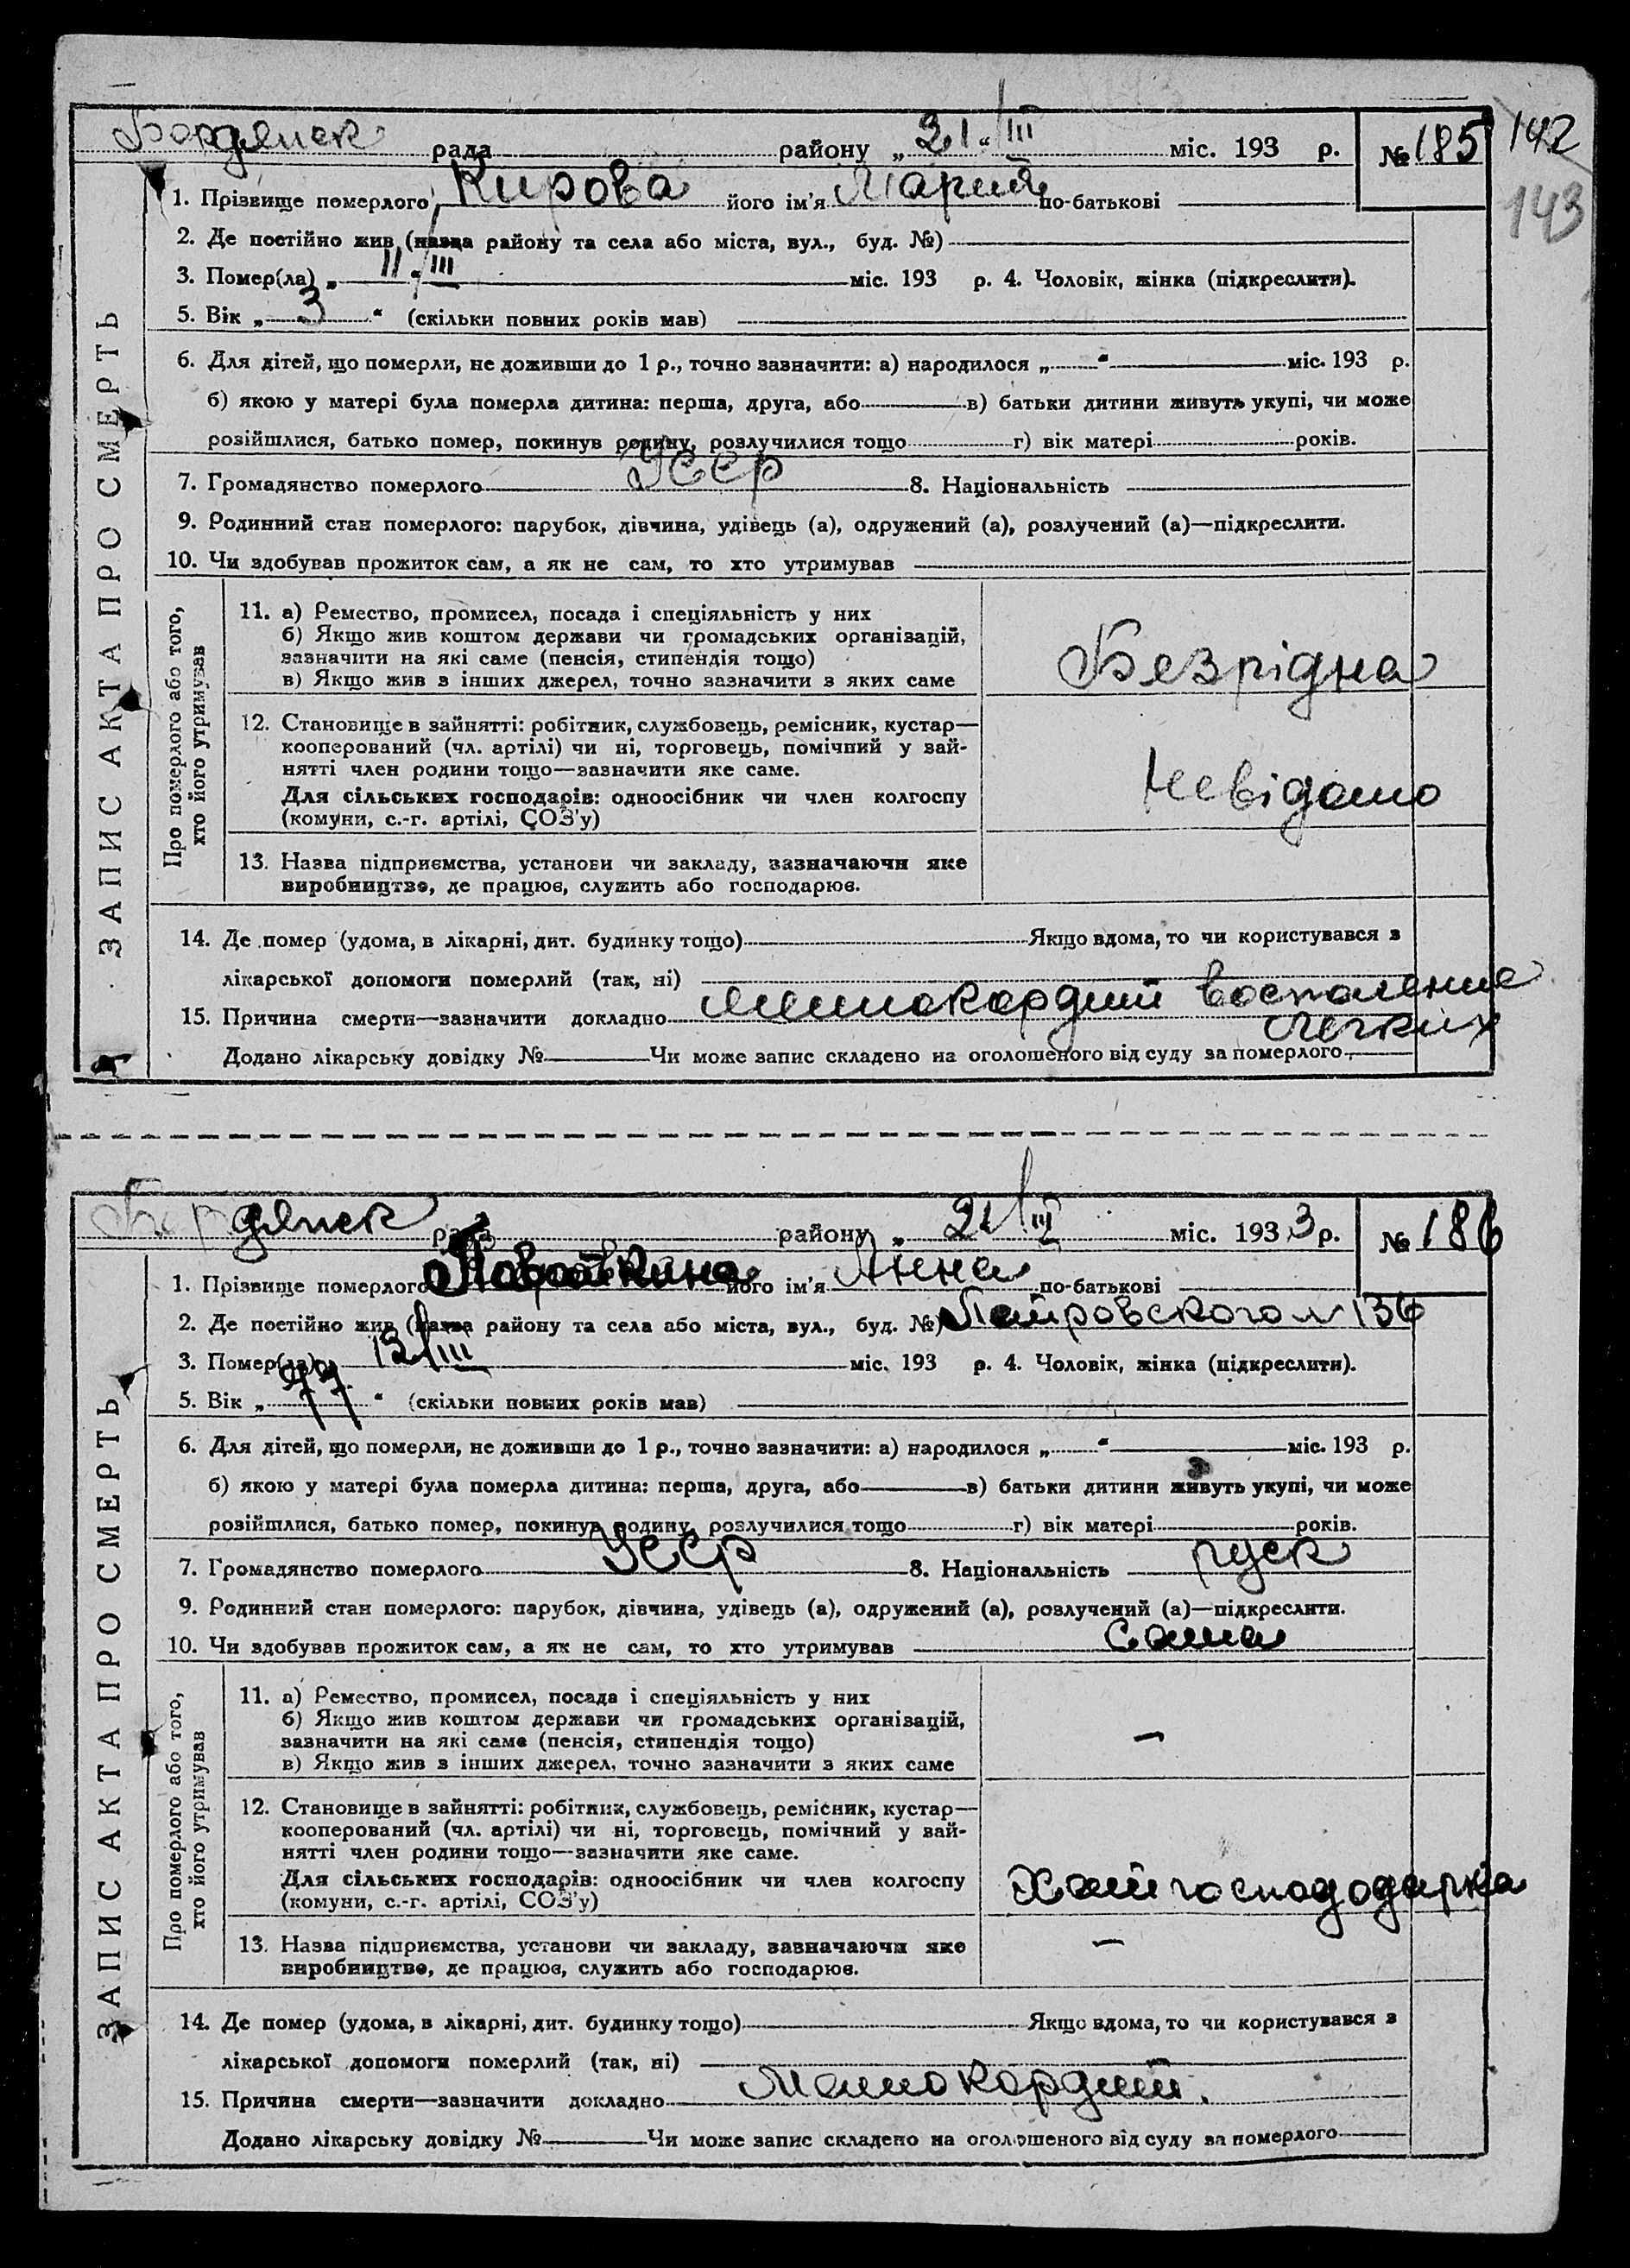 142
143
Бердянск рада району „21“/III міс. 193 р. № 185
ЗАПИС АКТА ПРО СМЕРТЬ
1. Прізвище померлого Кирова його ім'я Мария по-батькові
2. Де постійно жив (назва району та села або міста, вул., буд. №)
3. Помер(ла) „11/III міс. 193 р. 4. Чоловік, жінка (підкреслити).
5. Вік „3“ (скільки повних років мав)
6. Для дітей, що померли, не доживши до 1 р., точно зазначити: а) народилося „ “ міс. 193 р.
б) якою у матері була померла дитина: перша, друга, або в) батьки дитини живуть укупі, чи може
розійшлися, батько помер, покинув родину, розлучилися тощо г) вік матері років.
7. Громадянство померлого УССР 8. Національність
9. Родинний стан померлого: парубок, дівчина, удівець (а), одружений (а), розлучений (а)—підкреслити.
10. Чи здобував прожиток сам, а як не сам, то хто утримував
Про померлого або того,
хто його утримував
11. а) Ремество, промисел, посада і спеціяльність у них
б) Якщо жив коштом держави чи громадських організацій,
зазначити на які саме (пенсія, стипендія тощо)
в) Якщо жив з інших джерел, точно зазначити з яких саме
Безрідна
12. Становище в зайнятті: робітник, службовець, ремісник, кустар—
кооперований (чл. артілі) чи ні, торговець, помічний у зай-
нятті член родини тощо—зазначити яке саме.
Для сільських господарів: одноосібник чи член колгоспу
(комуни, с.-г. артілі, СОЗ'у)
Невідомо
13. Назва підприємства, установи чи закладу, зазначаючи яке
виробництво, де працює, служить або господарює.
14. Де помер (удома, в лікарні, дит. будинку тощо) Якщо вдома, то чи користувався з
лікарської допомоги померлий (так, ні)
15. Причина смерти—зазначити докладно Миокордит воспаление
легких
Додано лікарську довідку № Чи може запис складено на оголошеного від суду за померлого
Бердянск рада району „21/III міс. 1933 р. № 186
ЗАПИС АКТА ПРО СМЕРТЬ
1. Прізвище померлого його ім'я Анна по-батькові
2. Де постійно жив (назва району та села або міста, вул., буд. №) Петровского № 136
3. Помер(ла) 13/III міс. 193 р. 4. Чоловік, жінка (підкреслити).
5. Вік „77“ (скільки повних років мав)
6. Для дітей, що померли, не доживши до 1 р., точно зазначити: а) народилося „ “ міс. 193 р.
б) якою у матері була померла дитина: перша, друга, або в) батьки дитини живуть укупі, чи може
розійшлися, батько помер, покинув родину, розлучилися тощо г) вік матері років.
7. Громадянство померлого УССР 8. Національність руск
9. Родинний стан померлого: парубок, дівчина, удівець (а), одружений (а), розлучений (а)—підкреслити.
10. Чи здобував прожиток сам, а як не сам, то хто утримував сама
Про померлого або того,
хто його утримував
11. а) Ремество, промисел, посада і спеціяльність у них
б) Якщо жив коштом держави чи громадських організацій,
зазначити на які саме (пенсія, стипендія тощо)
в) Якщо жив з інших джерел, точно зазначити з яких саме
—
12. Становище в зайнятті: робітник, службовець, ремісник, кустар—
кооперований (чл. артілі) чи ні, торговець, помічний у зай-
нятті член родини тощо—зазначити яке саме.
Для сільських господарів: одноосібник чи член колгоспу
(комуни, с.-г. артілі, СОЗ'у)
Хатгоспододарка
13. Назва підприємства, установи чи закладу, зазначаючи яке
виробництво, де працює, служить або господарює.
—
14. Де помер (удома, в лікарні, дит. будинку тощо) Якщо вдома, то чи користувався з
лікарської допомоги померлий (так, ні)
15. Причина смерти—зазначити докладно Миокордит.
Додано лікарську довідку № Чи може запис складено на оголошеного від суду за померлого